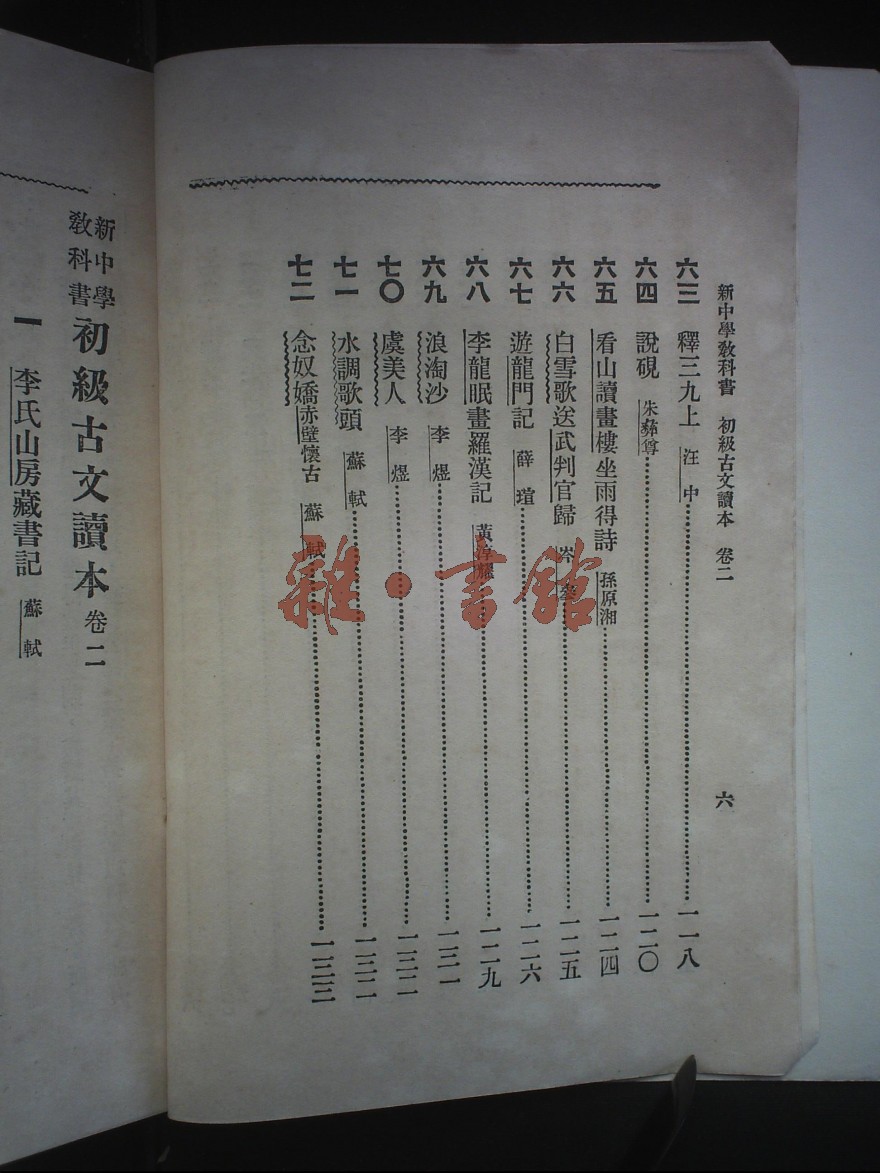 新中學教科書 初級古文讀本 卷二
六
六三 釋三九上 汪中 一一八
六四 說硯 朱彝尊 一二〇
六五 看山讀畫樓坐雨得詩 孫原湘 一二四
六六 白雪歌送武判官歸 岑參 一二五
六七 遊龍門記 薛瑄 一二六
六八 李龍眠畫羅漢記 黃淳耀 一二九
六九 浪淘沙 李煜 一三一
七〇 虞美人 李煜 一三二
七一 水調歌頭 蘇軾 一三二
七二 念奴嬌赤壁懷古 蘇軾 一三三
雜·書館
新中學教科書 初級古文讀本 卷二
一 李氏山房藏書記 蘇軾